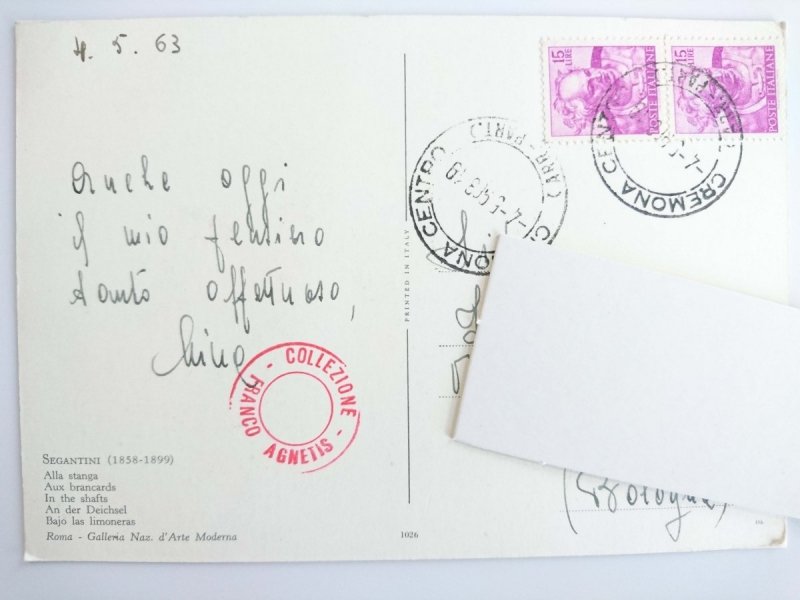 4. 5. 63
Anche oggi
il mio pensiero
tanto affettuoso,
Nino
COLLEZIONE - FRANCO AGNETIS -
SEGANTINI (1858-1899)
Alla stanga
Aux brancards
In the shafts
An der Deichsel
Bajo las limoneras
Roma - Galleria Naz. d'Arte Moderna
PRINTED IN ITALY
1026
15 LIRE
POSTE ITALIANE
15 LIRE
POSTE ITALIANE
CREMONA CENTRO
(ARR. E PART.)
CREMONA CEN
(Bologna)